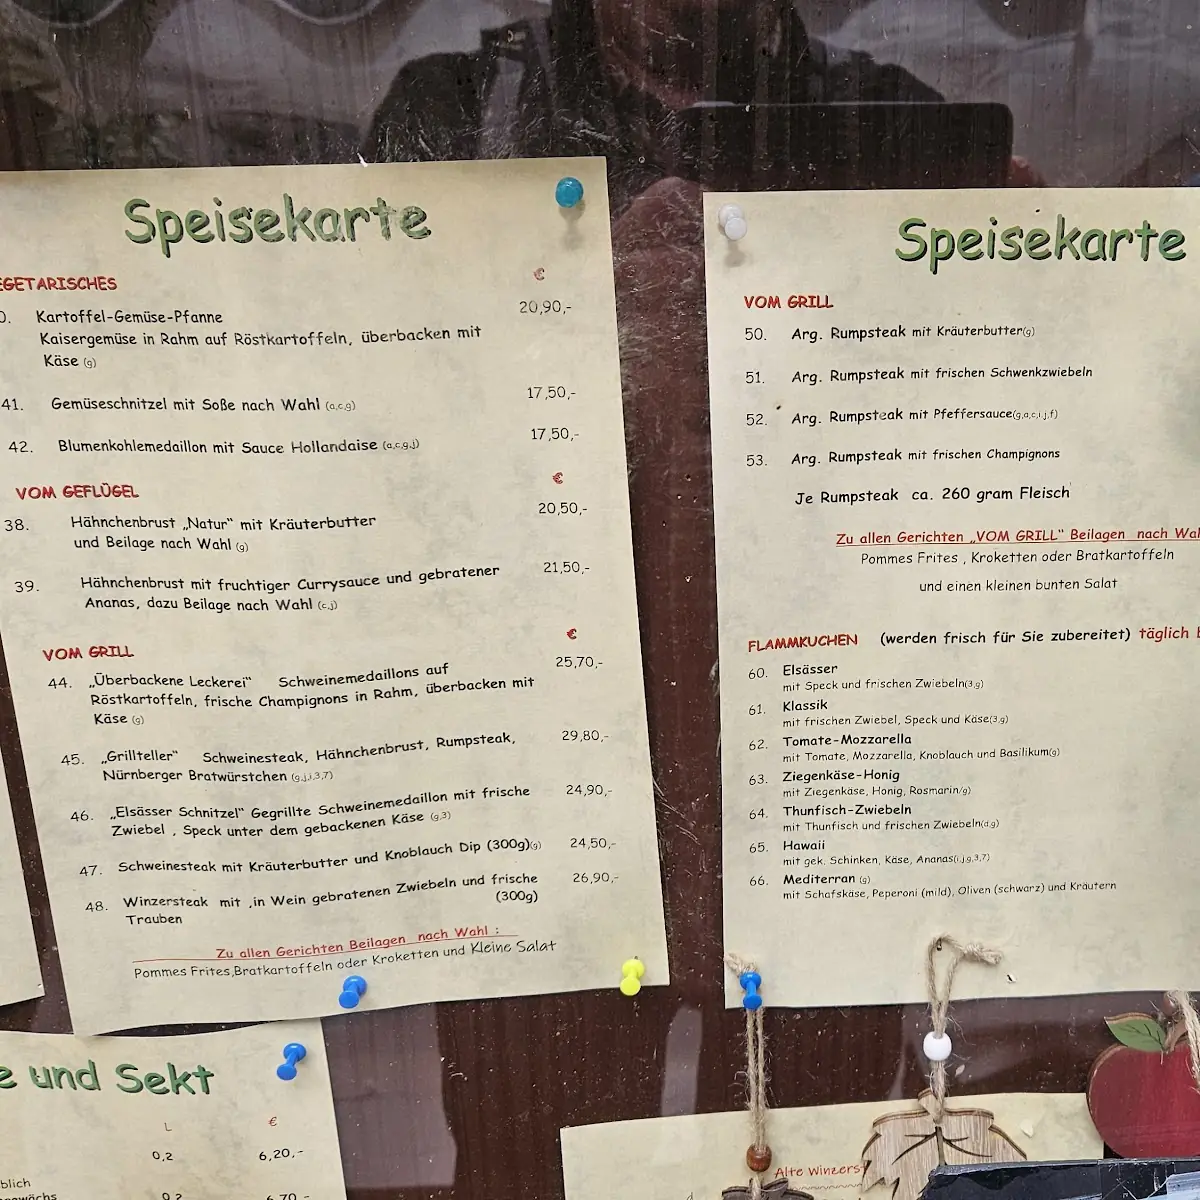 Speisekarte
EGETARISCHES €
0. Kartoffel-Gemüse-Pfanne 20,90,-
Kaisergemüse in Rahm auf Röstkartoffeln, überbacken mit
Käse (g)
41. Gemüseschnitzel mit Soße nach Wahl (a,c,g) 17,50,-
42. Blumenkohlemedaillon mit Sauce Hollandaise (a,c,g,j) 17,50,-
VOM GEFLÜGEL €
38. Hähnchenbrust „Natur" mit Kräuterbutter 20,50,-
und Beilage nach Wahl (g)
39. Hähnchenbrust mit fruchtiger Currysauce und gebratener 21,50,-
Ananas, dazu Beilage nach Wahl (c,j)
VOM GRILL €
44. „Überbackene Leckerei" Schweinemedaillons auf 25,70,-
Röstkartoffeln, frische Champignons in Rahm, überbacken mit
Käse (g)
45. „Grillteller" Schweinesteak, Hähnchenbrust, Rumpsteak, 29,80,-
Nürnberger Bratwürstchen (g,j,i,3,7)
46. „Elsässer Schnitzel" Gegrillte Schweinemedaillon mit frische 24,90,-
Zwiebel , Speck unter dem gebackenen Käse (g,3)
47. Schweinesteak mit Kräuterbutter und Knoblauch Dip (300g)(g) 24,50,-
48. Winzersteak mit ,in Wein gebratenen Zwiebeln und frische 26,90,-
Trauben (300g)
Zu allen Gerichten Beilagen nach Wahl :
Pommes Frites,Bratkartoffeln oder Kroketten und Kleine Salat
Speisekarte
VOM GRILL
50. Arg. Rumpsteak mit Kräuterbutter(g)
51. Arg. Rumpsteak mit frischen Schwenkzwiebeln
52. Arg. Rumpsteak mit Pfeffersauce(g,a,c,i,j,f)
53. Arg. Rumpsteak mit frischen Champignons
Je Rumpsteak ca. 260 gram Fleisch
Zu allen Gerichten „VOM GRILL" Beilagen nach Wal
Pommes Frites , Kroketten oder Bratkartoffeln
und einen kleinen bunten Salat
FLAMMKUCHEN (werden frisch für Sie zubereitet) täglich
60. Elsässer
mit Speck und frischen Zwiebeln(3,g)
61. Klassik
mit frischen Zwiebel, Speck und Käse(3,g)
62. Tomate-Mozzarella
mit Tomate, Mozzarella, Knoblauch und Basilikum(g)
63. Ziegenkäse-Honig
mit Ziegenkäse, Honig, Rosmarin/g)
64. Thunfisch-Zwiebeln
mit Thunfisch und frischen Zwiebeln(d,g)
65. Hawaii
mit gek. Schinken, Käse, Ananas(i,j,g,3,7)
66. Mediterran (g)
mit Schafskäse, Peperoni (mild), Oliven (schwarz) und Kräutern
e und Sekt
L €
0,2 6,20,-
blich
0,2 6,70,-
Alte Winzers